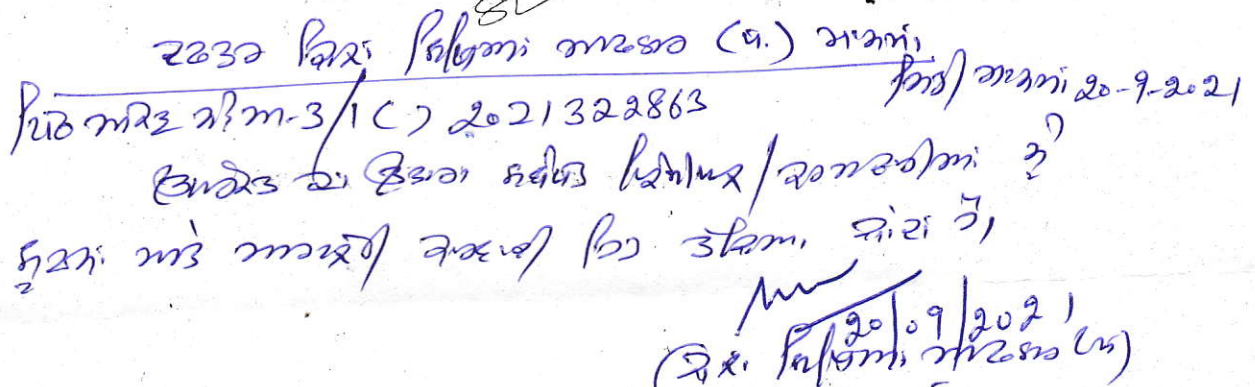 ਦਫਤਰ ਜਿਲਾ ਸਿੱਖਿਆ ਅਫਸਰ (ਪ.) ਮਾਨਸਾ,
ਪਿੱਠ ਅੰਕਣ ਨੰ: ਅ-3/1 ( ) 2021322863 ਮਿਤੀ ਮਾਨਸਾ 20-9-2021
ਉਪਰੋਕਤ ਦਾ ਉਤਾਰਾ ਸਬੰਧਤ ਪ੍ਰਿੰਸੀਪਲ/ਕਰਮਚਾਰੀਆਂ ਨੂੰ
ਸੂਚਨਾ ਅਤੇ ਅਗਲੇਰੀ ਕਾਰਵਾਈ ਹਿਤ ਭੇਜਿਆ ਜਾਂਦਾ ਹੈ,
20/09/2021
(ਜਿਲਾ ਸਿੱਖਿਆ ਅਫਸਰ (ਪ)